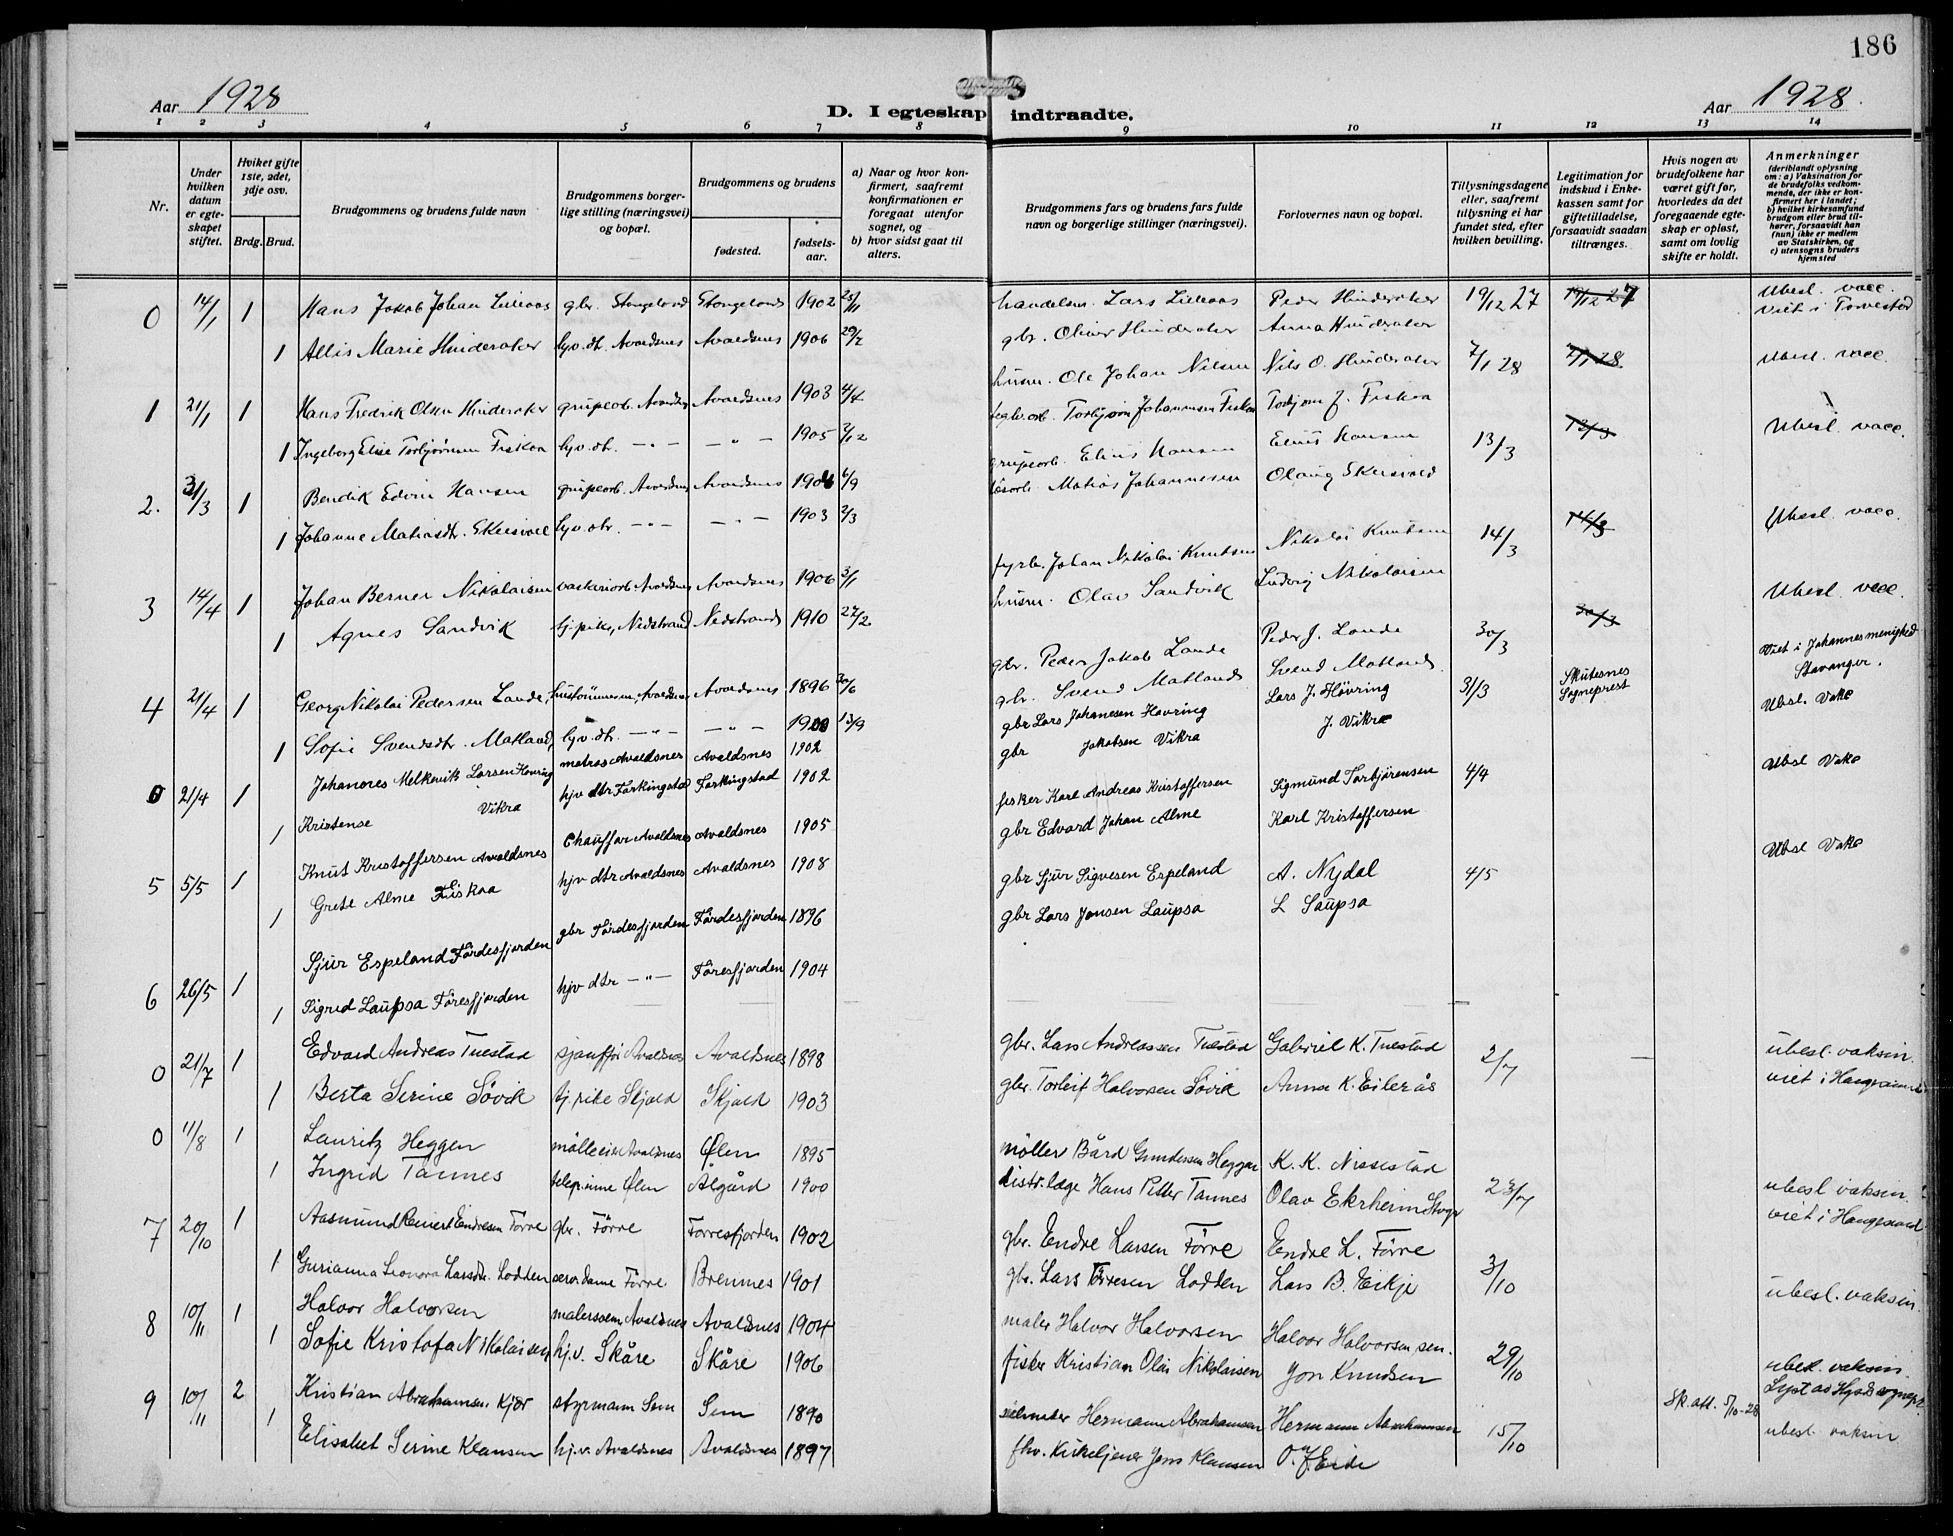 186
Aar 1928
D. I egteskap indtraadte.
Aar 1928.
1 2 3 4 5 6 7 8 9 10 11 12 13 14
Nr.
Under hvilken datum er egteskapet stiftet.
Hvilket gifte 1ste, 2det, 3dje osv.
Brdg. Brud.
Brudgommens og brudens fulde navn
Brudgommens borgerlige stilling (næringsvei) og bopæl.
Brudgommens og brudens
fødested.
fødselsaar.
a) Naar og hvor konfirmert, saafremt konfirmationen er foregaat utenfor sognet, og
b) hvor sidst gaat til alters.
Brudgommens fars og brudens fars fulde navn og borgerlige stillinger (næringsvei).
Forlovernes navn og bopæl.
Tillysningsdagene eller, saafremt tillysning ei har fundet sted, efter hvilken bevilling.
Legitimation for indskud i Enkekassen samt for giftetilladelse, forsaavidt saadan tiltrænges.
Hvis nogen av brudefolkene har været gift før, hvorledes da det foregaaende egteskap er opløst, samt om lovlig skifte er holdt.
Anmerkninger (deriblandt oplysning om: a) Vaksination for de brudefolks vedkommende, der ikke er konfirmert her i landet; b) hvilket kirkesamfund brudgom eller brud tilhører, forsaavidt han (hun) ikke er medlem av Statskirken, og c) utensogns bruders hjemsted
0 14/1 1 Hans Jakob Johan Lilleaas gbr. Stongeland Stongeland 1902 25/11 handelsm. Lars Lilleaas Peder Hinderaker 19/12 27 19/12 27 Ubesl. vacc. Viet i Torvestad
1 Allis Marie Hinderaker hjv. dtr. Avaldsnes Avaldsnes 1906 29/2 gbr. Oliver Hinderaker Anna Hinderaker
1 21/1 1 Hans Fredrik Olsen Hinderaker grubearb. Avaldsnes Avaldsnes 1903 4/4 husm. Ole Johan Nilsen Nils O. Hinderaker 7/1 28 7/1 28 Ubesl. vacc.
1 Ingeborg Elise Torbjørnsen Fiskaa hjv. dtr. — " — — " — 1905 2/12 Torbjørn Johannesen Fiskaa Torbjørn J. Fiskaa
2. 31/3 1 Bendik Edvin Hansen grubearb. Avaldsnes Avaldsnes 1904 6/9 grubearb. Elias Hansen Elias Hansen 13/3 13/3 Ubesl. vacc.
1 Johanne Matiasdtr. Skeisvoll hjv. dtr. — " — — " — 1903 2/3 Matias Johannesen Olaug Skeisvold
3 14/4 1 Johan Berner Nikolaisen vaskeriarb. Avaldsnes Avaldsnes 1906 3/1 fyrb. Johan Nikolai Knutsen Nikolai Knutsen 14/3 14/3 Ubesl. vacc.
1 Agnes Sandvik tj. pike, Nedstrand Nedstrand 1910 27/2 husm. Olav Sandvik Ludvig Nikolaisen
4 21/4 1 Georg Nikolai Pedersen Lande, Avaldsnes Avaldsnes 1896 20/6 gbr. Peder Jakob Lande Peder J. Lande 30/3 30/3 Ubesl. vacc.
1 Sofie Svendsdtr. Matland, hjv. dtr. — " — — " — 1900 13/9 gbr. Svend Matland Svend Matland. Viet i Johannes menighed Stavanger.
0 21/4 1 Johannes Melkevik Larsen Hovring matros Avaldsnes Avaldsnes 1902 gbr Lars Johanesen Hovring Lars J. Hövring 31/3 Skutesnes Sogneprest Ubsl. Vake
1 Kristense Vikra hjv dtr Færkingstad Færkingstad 1902 gbr Jakobsen Vikra J. Vikra
5 5/5 1 Knut Kristoffersen Avaldsnes Chauffør Avaldsnes Avaldsnes 1905 fisker Karl Andreas Kristoffersen Sigmund Torbjörensen 4/4 Ubsl Vake
1 Grete Alme Fiskaa hjv dtr Avaldsnes Avaldsnes 1908 gbr Edvard Johan Alme Karl Kristoffersen
6 26/5 1 Sjur Espeland Fördesfjorden gbr Fördesfjorden Fördesfjorden 1896 gbr Sjur Sigvesen Espeland A. Nydal 4/5 Ubsl Vake
1 Sigrid Laupsa Föresfjorden hjv dtr — " — Föresfjorden 1904 gbr Lars Jonsen Laupsa L Laupsa
0 21/7 1 Edvard Andreas Tuestad sjauffør Avaldsnes Avaldsnes 1898 gbr. Lars Andreassen Tuestad Gabriel K. Tuestad 2/7 — ubesl. vaksin.
1 Berta Serine Søvik tj. pike Skjold Skjold 1903 gbr. Torleif Halvorsen Søvik Anna K. Eikerås viet i Haugesund
0 11/8 1 Lauritz Heggen mølleeier Avaldsnes Ølen 1895 møller Bård Gundersen Heggen K. K. Nissestad 23/7 ubesl vaksin.
1 Ingrid Tannes telef.inne Ølen Ålgård 1900 distr. læge Hans Petter Tannes Olav Ekrheim Stvgr viet i Haugesund.
7 20/10 1 Aasmund Reinert Endresen Förre gbr. Förre Förresfjorden 1902 gbr. Endre Larsen Förre Endre L. Förre 3/10 ubesl. vaksin.
1 Gurianna Leonora Larsdtr. Lodden Förre Bremnes 1901 gbr. Lars Lodden Lars B. Eikje
8 10/11 1 Halvor Halvorsen malersvenn Avaldsnes Avaldsnes 1904 maler Halvor Halvorsen Halvor Halvorsen sen. 29/10 ubesl. vaksin.
1 Sofie Kristofa Nikolaisen hj.v. Skåre Skåre 1906 fisker Kristian Olai Nikolaisen Jon Knudsen
9 10/11 2 Kristian Abrahamsen Kjær styrmann Sem Sem 1890 Hermann Abrahamsen Hermann Abrahamsen 15/10 Sk. att. 5/10-28
1 Elisabet Serine Klausen hj.v. Avaldsnes Avaldsnes 1897 fhv. Kirketjener Jens Klausen O. J. Eide ubesl. vaksin